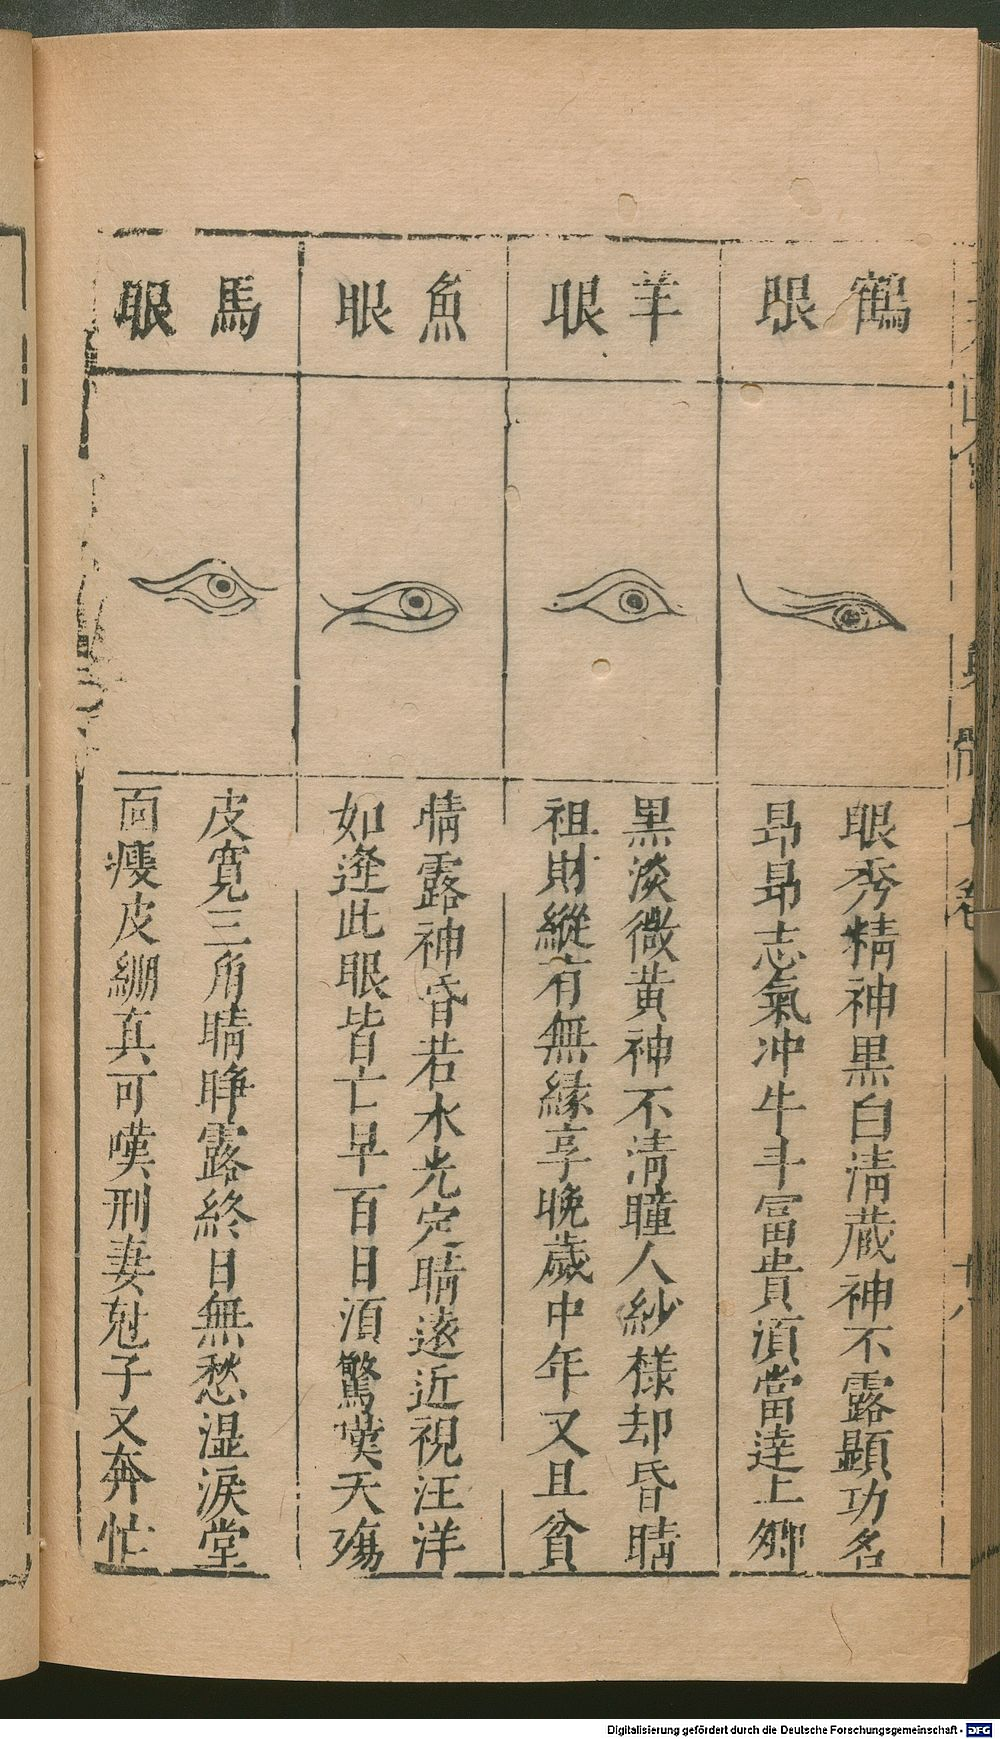 鶴眼
眼秀精神黒白清藏神不露顕功名
昂昂志氣冲牛斗富貴湏當逹上卿
羊眼
黒淡微黄神不清瞳人紗様却昏睛
祖財縱有無縁享晚歲中年又且貧
魚眼
睛露神昏若水光定睛遠近視汪洋
如逢此眼皆亡早百日湏驚嘆夭殤
馬眼
皮寛三角睛睜露終日無愁湿淚堂
面瘦皮繃真可嘆刑妻尅子又奔忙
卷
Digitalisierung gefördert durch die Deutsche Forschungsgemeinschaft - DFG